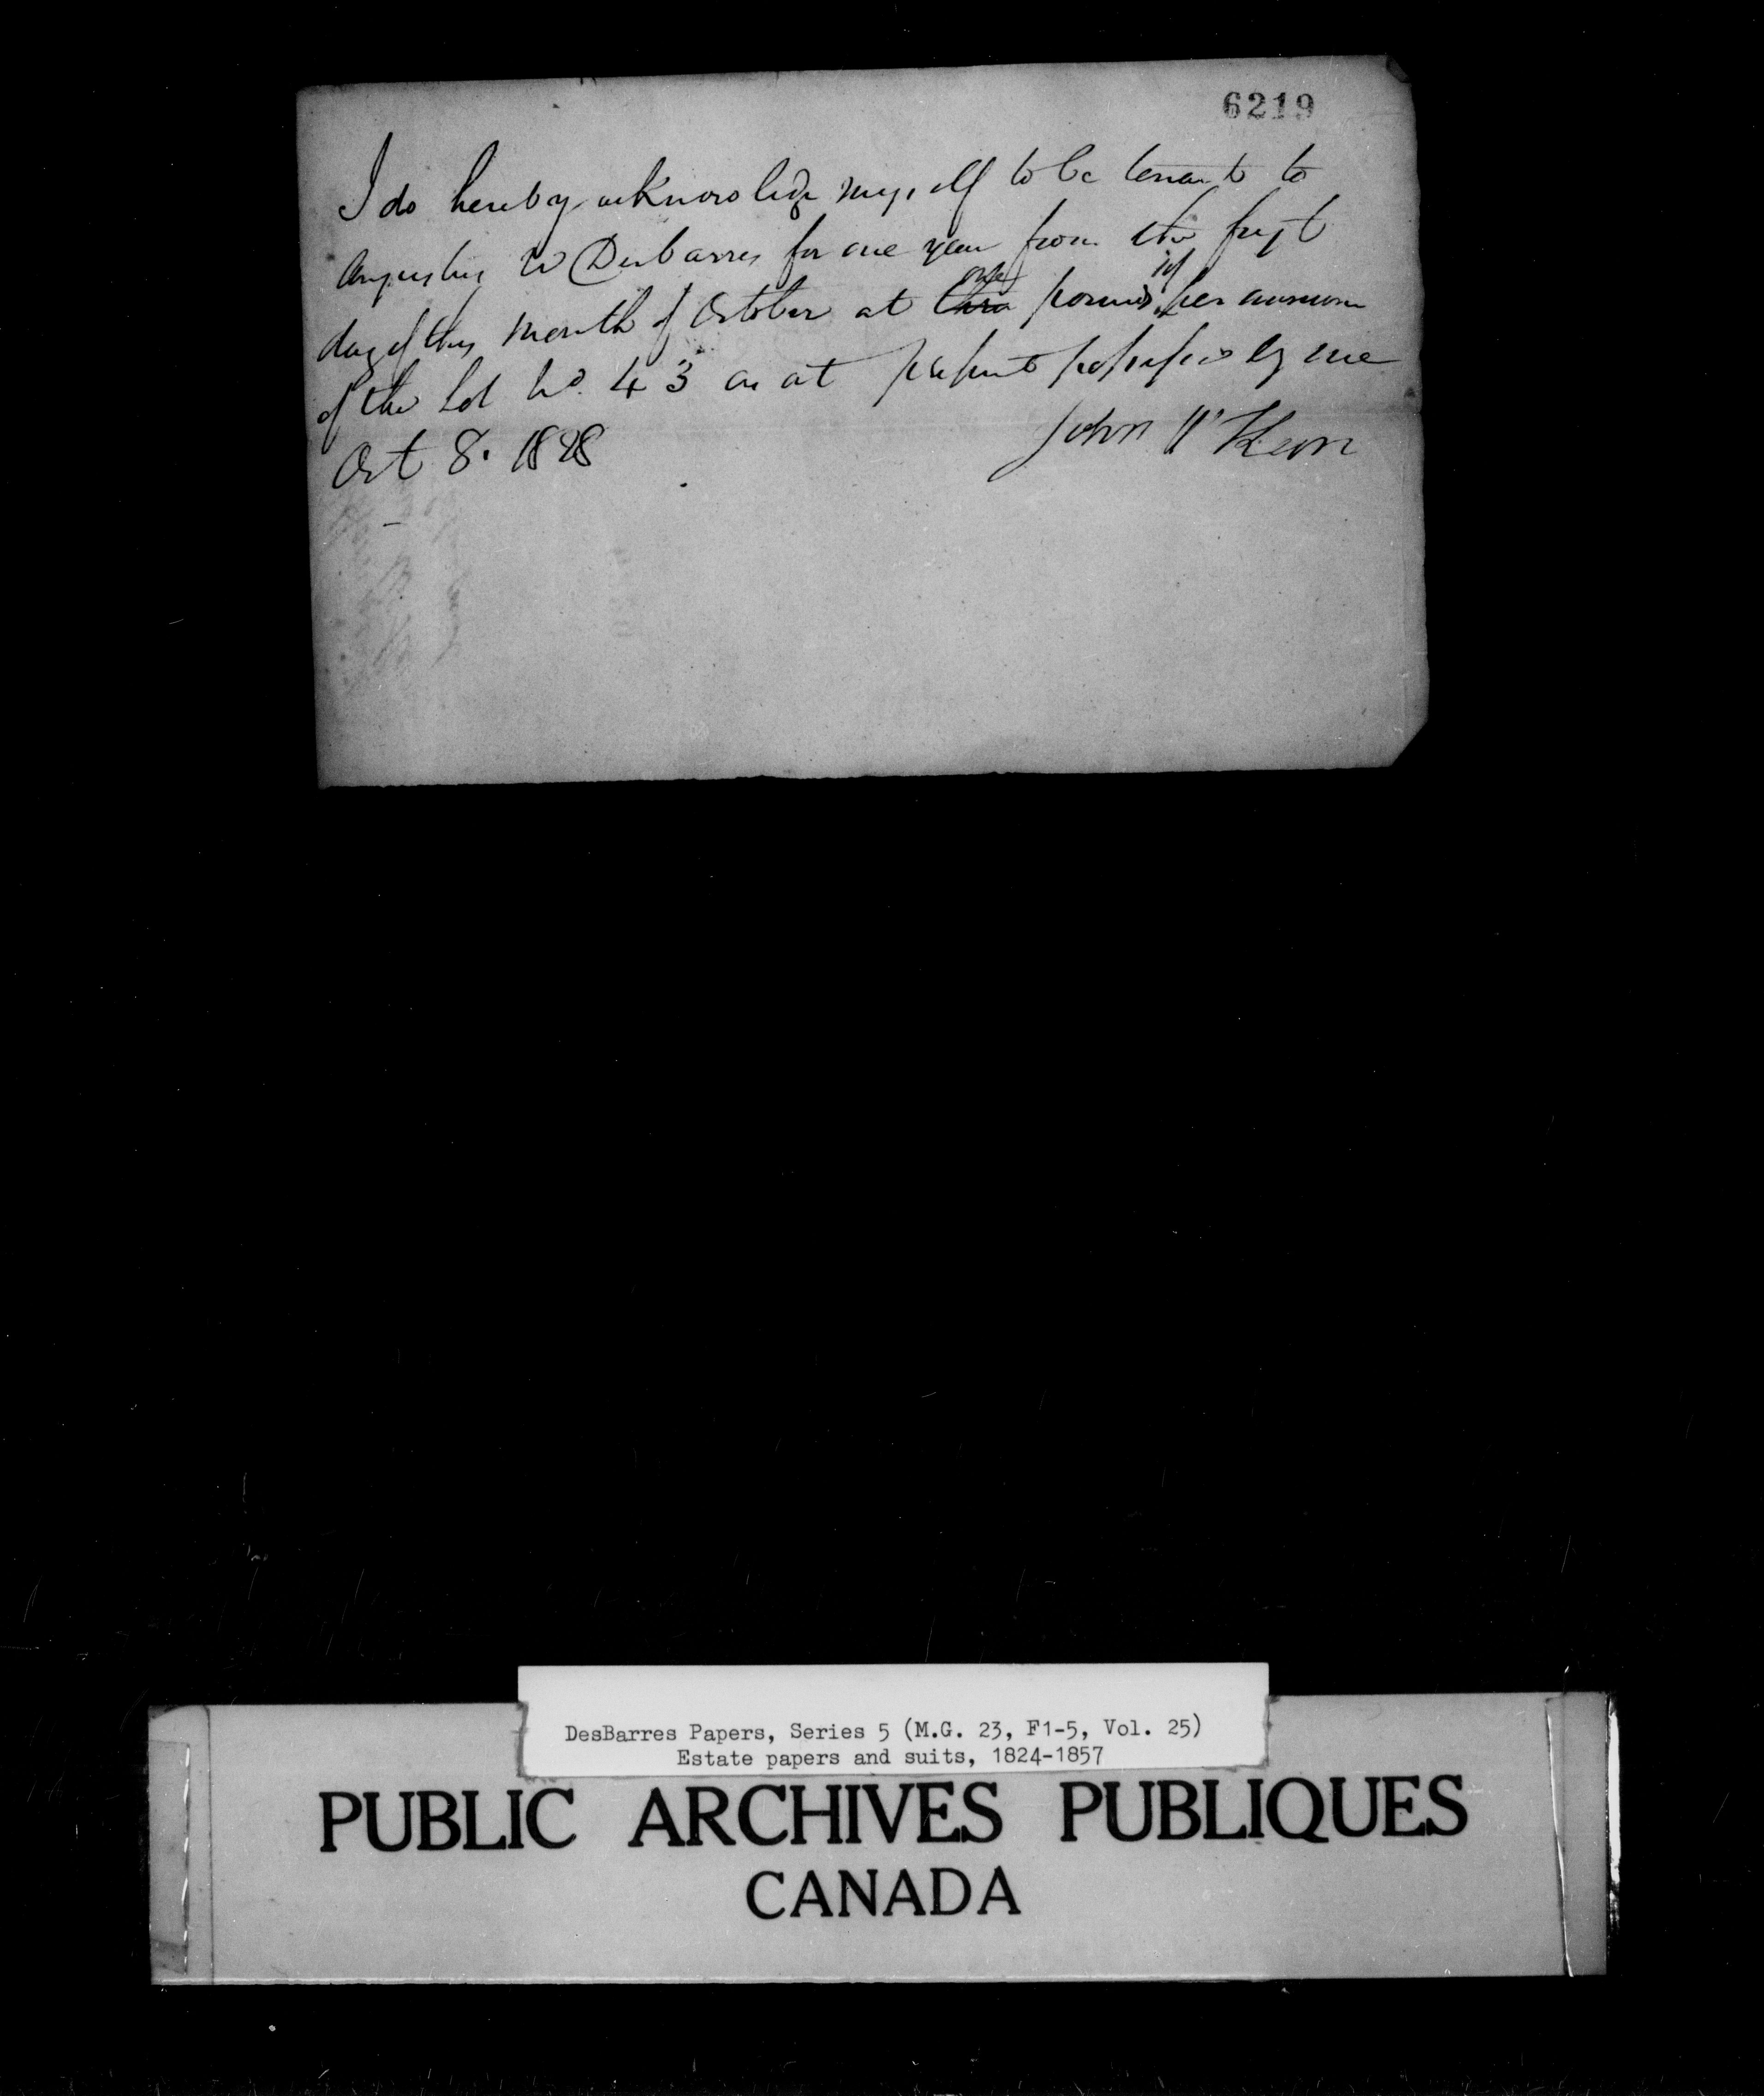 6219
I do hereby acknowledge myself to be tenant to
Augustus W DesBarres for one year from the first
day of this month of October at one pounds per annum
of the Lot No. 43 as at present possessed by me
Oct 8. 1828 John McKeon
DesBarres Papers, Series 5 (M.G. 23, F1-5, Vol. 25)
Estate papers and suits, 1824-1857
PUBLIC ARCHIVES PUBLIQUES
CANADA